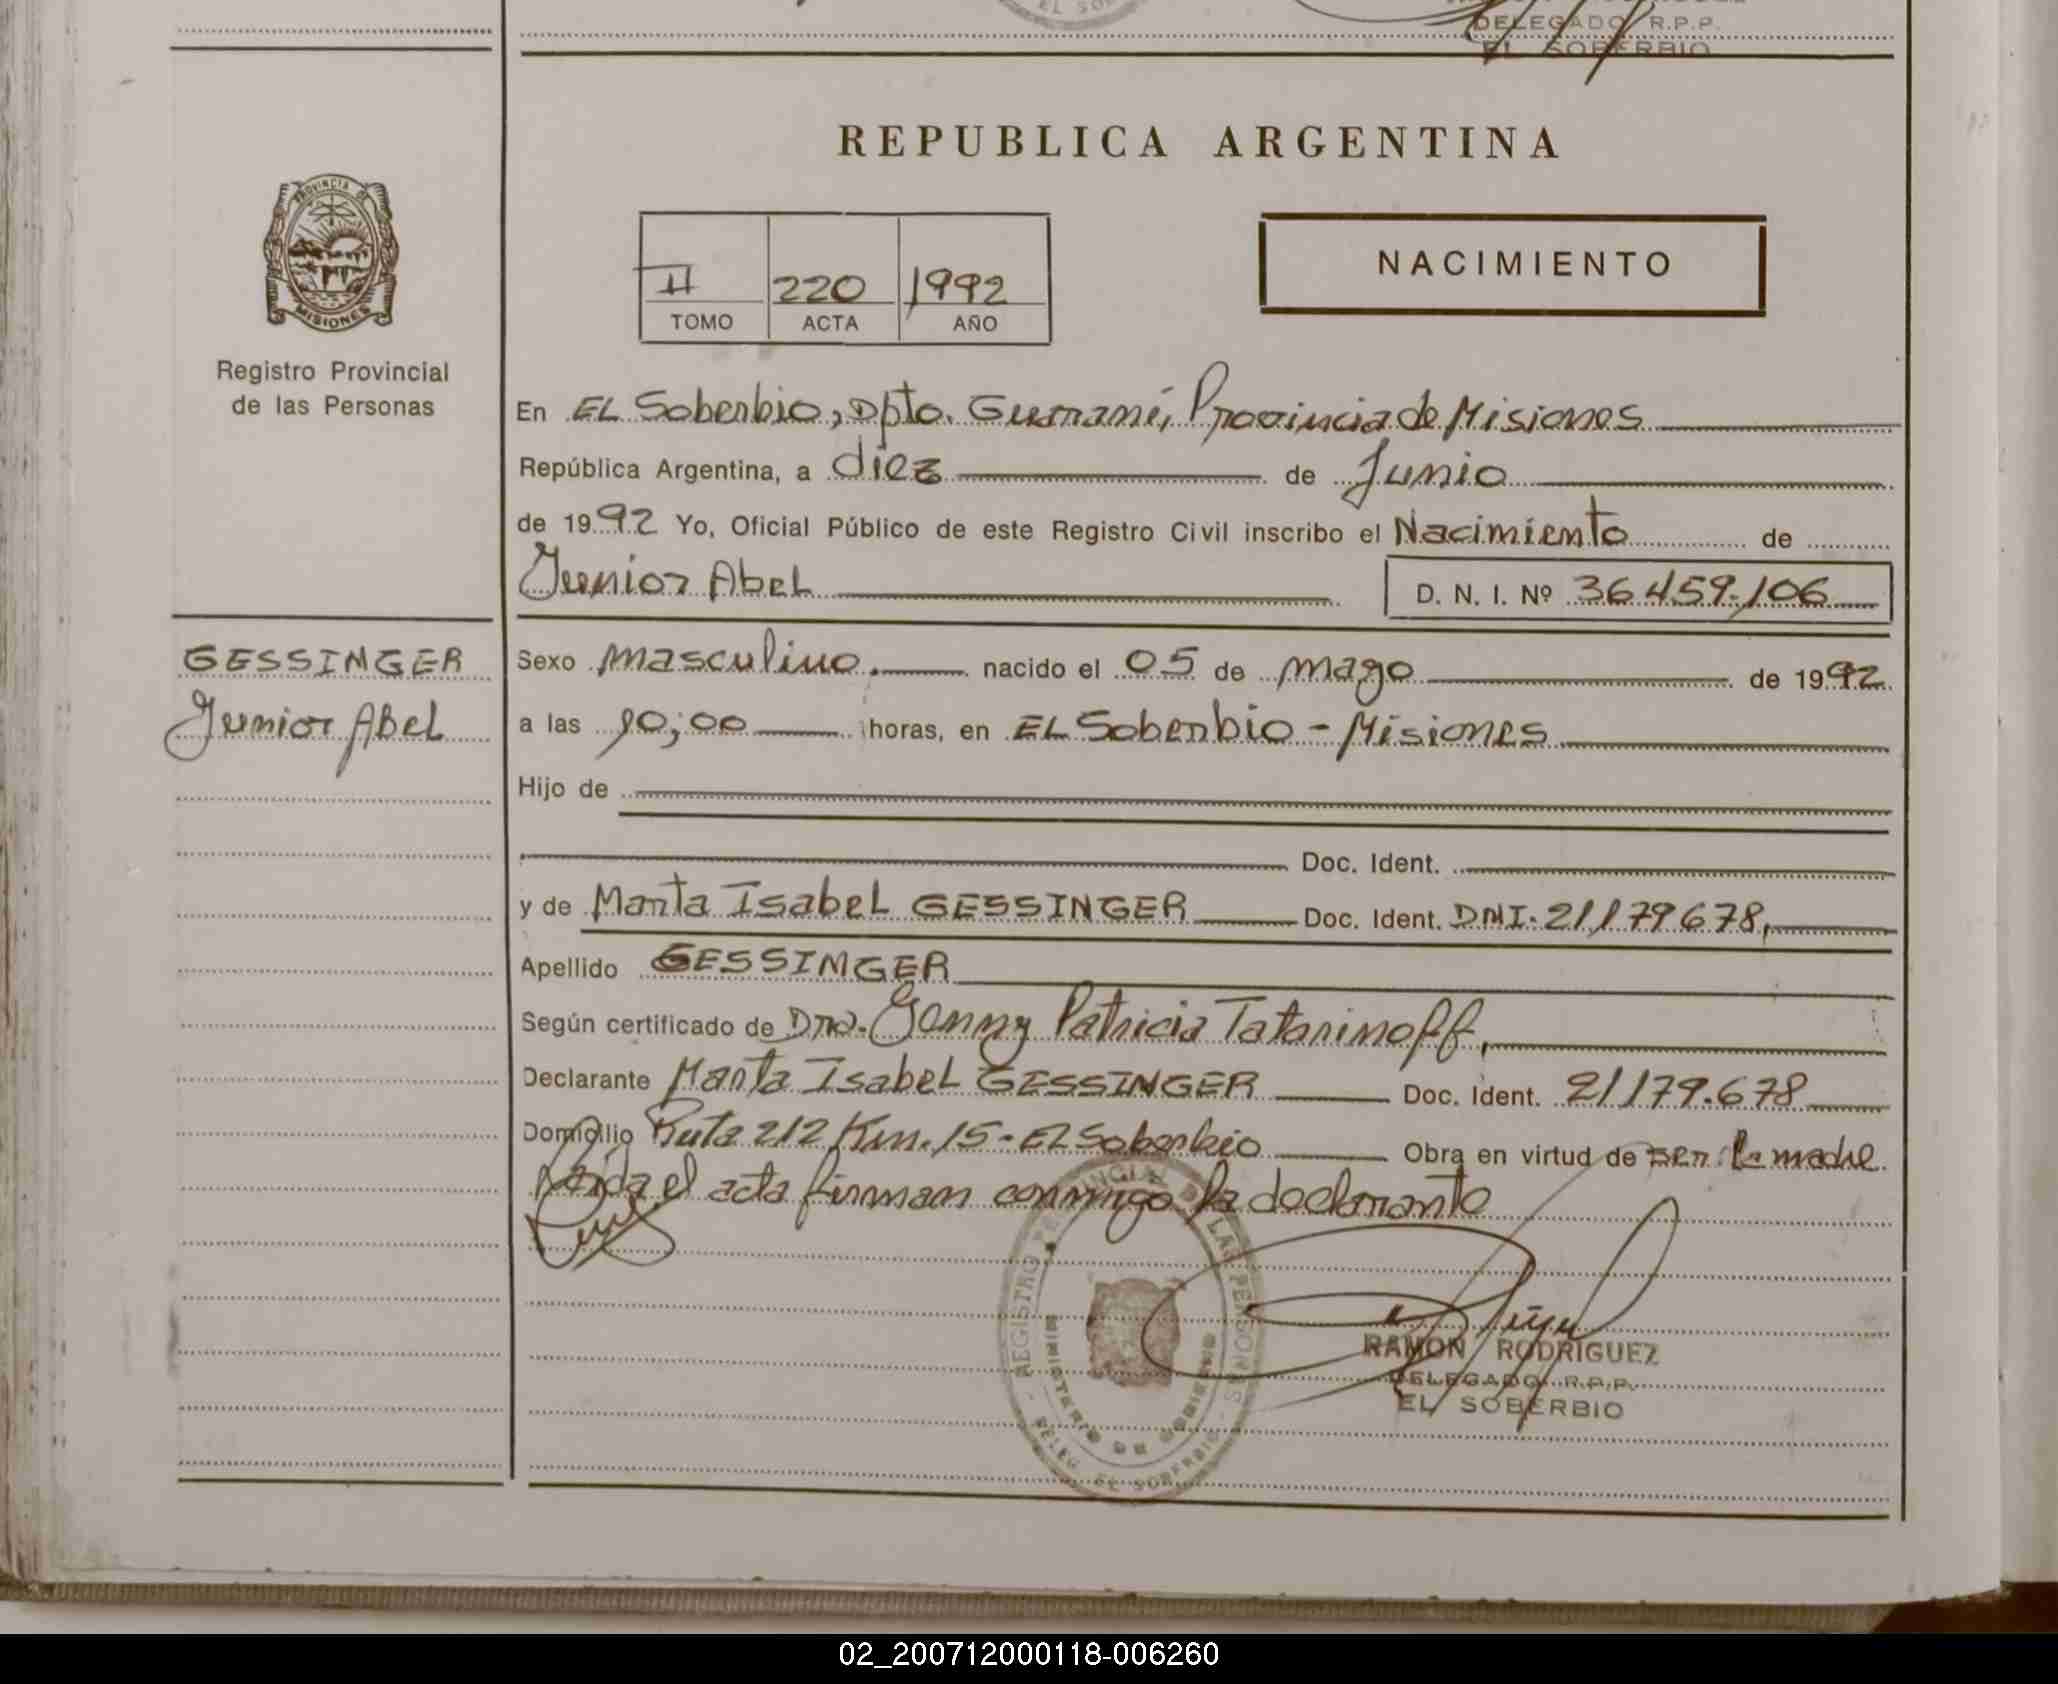 EL SOB
DELEGADO R.P.P.
EL SOBERBIO
REPUBLICA ARGENTINA
PROVINCIA DE
MISIONES
Registro Provincial
de las Personas
II 220 1992
TOMO ACTA AÑO
NACIMIENTO
En EL Soberbio, Dpto. Guarani, Provincia de Misiones
República Argentina, a diez de Junio
de 1992 Yo, Oficial Público de este Registro Civil inscribo el Nacimiento de
Junior Abel D. N. I. Nº 36.459.106
GESSINGER
Junior Abel
Sexo masculino. nacido el 05 de mayo de 1992
a las 10;00 horas, en EL Soberbio - Misiones
Hijo de
Doc. Ident.
y de Marta Isabel GESSINGER Doc. Ident. DNI. 21179678,
Apellido GESSINGER
Según certificado de Dra. Genny Patricia Tatarinoff,
Declarante Marta Isabel GESSINGER Doc. Ident. 21179.678
Domicilio Ruta 212 Km. 15 - El Soberbio Obra en virtud de ser la madre
Leida el acta firman conmigo la declarante
REGISTRO PROVINCIAL DE LAS PERSONAS
MINISTERIO DE GOBIERNO
DELEG. EL SOBERBIO
RAMON RODRIGUEZ
DELEGADO R.P.P.
EL SOBERBIO
02_200712000118-006260